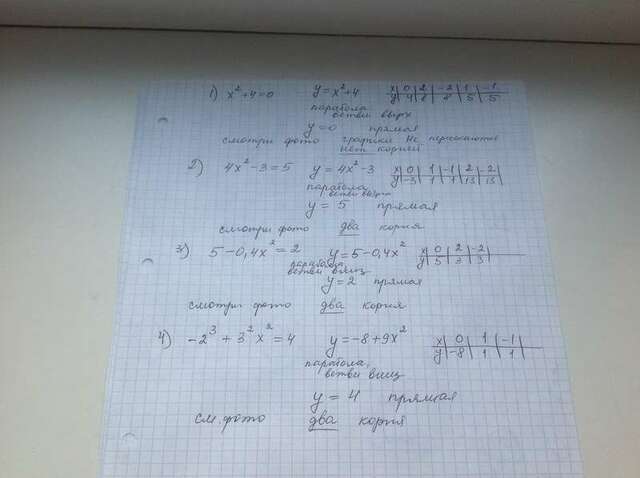 1) x²+4=0 y=x²+4 x | 0 | 2 | -2 | 1 | -1
y | 4 | 8 | 8 | 5 | 5
парабола
ветви вверх
y=0 прямая
смотри фото графики не пересекаются
нет корней
2) 4x²-3=5 y=4x²-3 x | 0 | 1 | -1 | 2 | -2
y | -3 | 1 | 1 | 13 | 13
парабола,
ветви вверх
y=5 прямая
смотри фото два корня
3) 5-0,4x²=2 y=5-0,4x² x | 0 | 2 | -2
y | 5 | 3 | 3
парабола,
ветви вниз
y=2 прямая
смотри фото два корня
4) -2³+3²x²=4 y=-8+9x² x | 0 | 1 | -1
y | -8 | 1 | 1
парабола,
ветви вниз
y=4 прямая
см. фото два корня